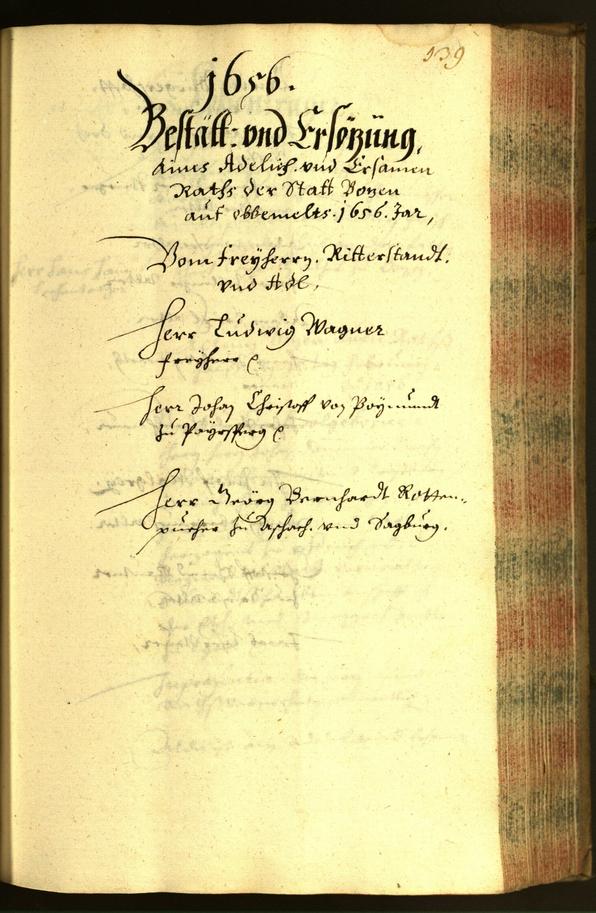 139
1656.
Bestätt: vnd Ersözüng,
Aines Adelich. vnd Ersamen
Raths der Statt Bozen
auf obbemelts. 1656. Jar,
Vom Freyherrn. Ritterstandt.
vnd Adl,
Herr Ludwig Wagner
Freyherr
Herr Johan Christoff von Pöymundt
zu Payrsperg
Herr Geörg Bernhardt Rotten-
puecher zu Aschach. vnd Sagburg.